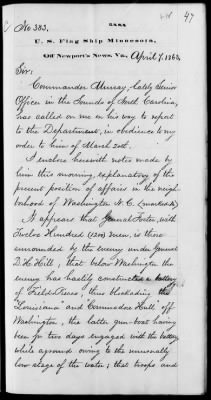 47
No 383,
U. S. Flag Ship Minnesota,
Off Newport's News, Va., April 7, 1863,
Sir:
Commander Murray, lately Senior
Officer in the Sounds of North Carolina,
has called on me on his way to report
to the Department, in obedience to my
order to him of March 20th.
I enclose herewith notes made by
him this morning, explanatory of the
present position of affairs in the neigh-
borhood of Washington N. C. (marked A)
It appears that General Foster, with
Twelve Hundred (1200) men, is there
surrounded by the enemy under General
D. H. Hill; that below Washington the
enemy has hastily constructed a battery
of Field Pieces, thus blockading the
"Louisiana" and "Commodore Hull" off
Washington, the latter gun-boat having
been for two days engaged with the battery
while aground owing to the unusually
low stage of the water; that troops and